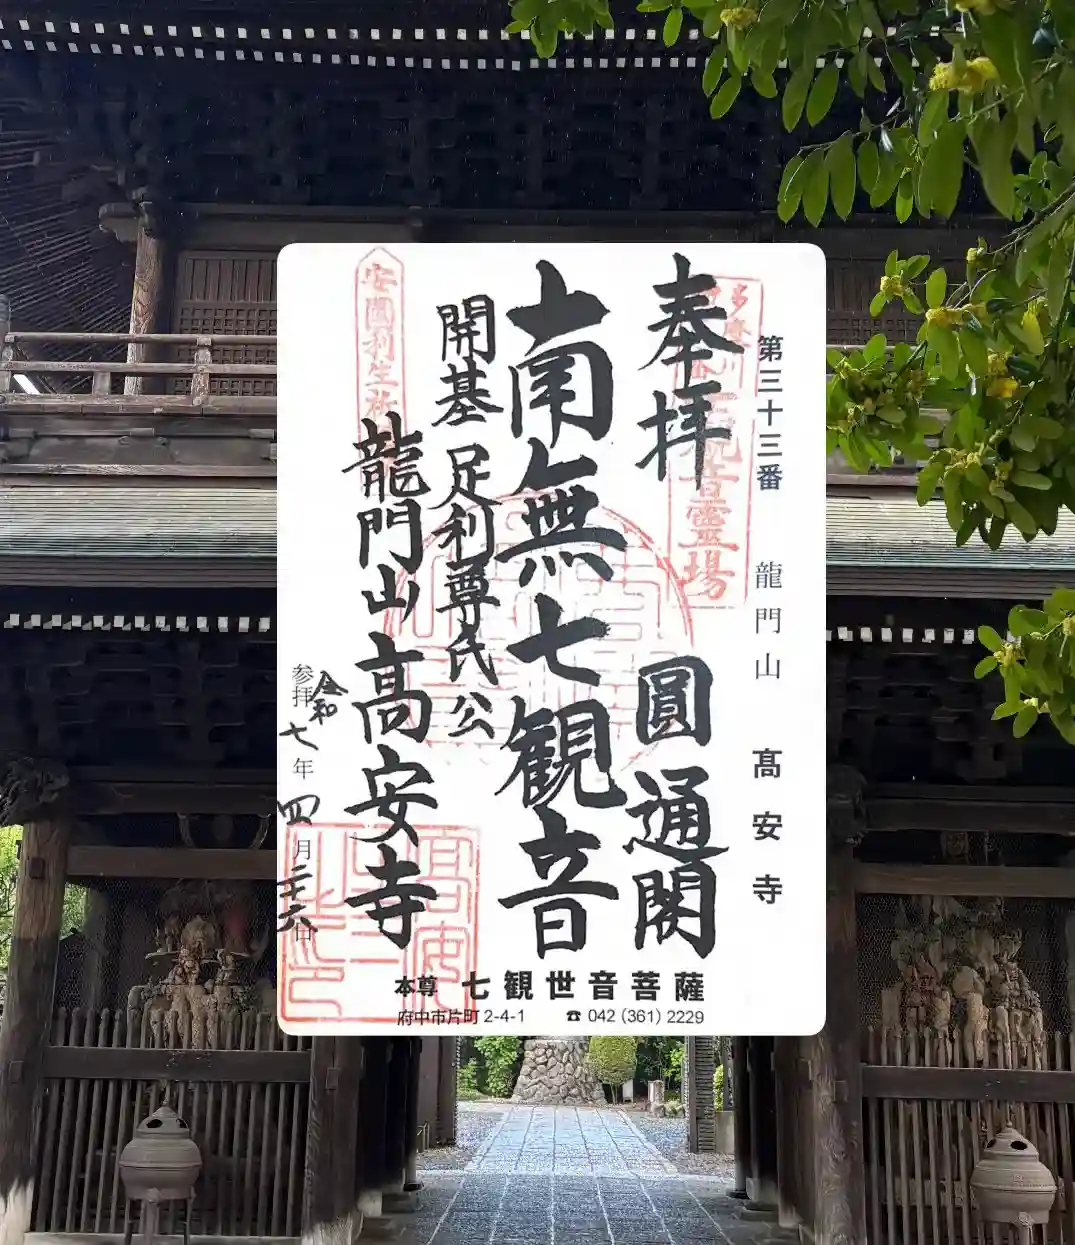 第三十三番 龍門山 髙安寺
奉拝 圓通閣
南無七観音
開基 足利尊氏公
龍門山髙安寺
参拝 令和七年四月二十六日
安國利生
靈場
本尊 七観世音菩薩
府中市片町2-4-1 ☎ 042(361)2229